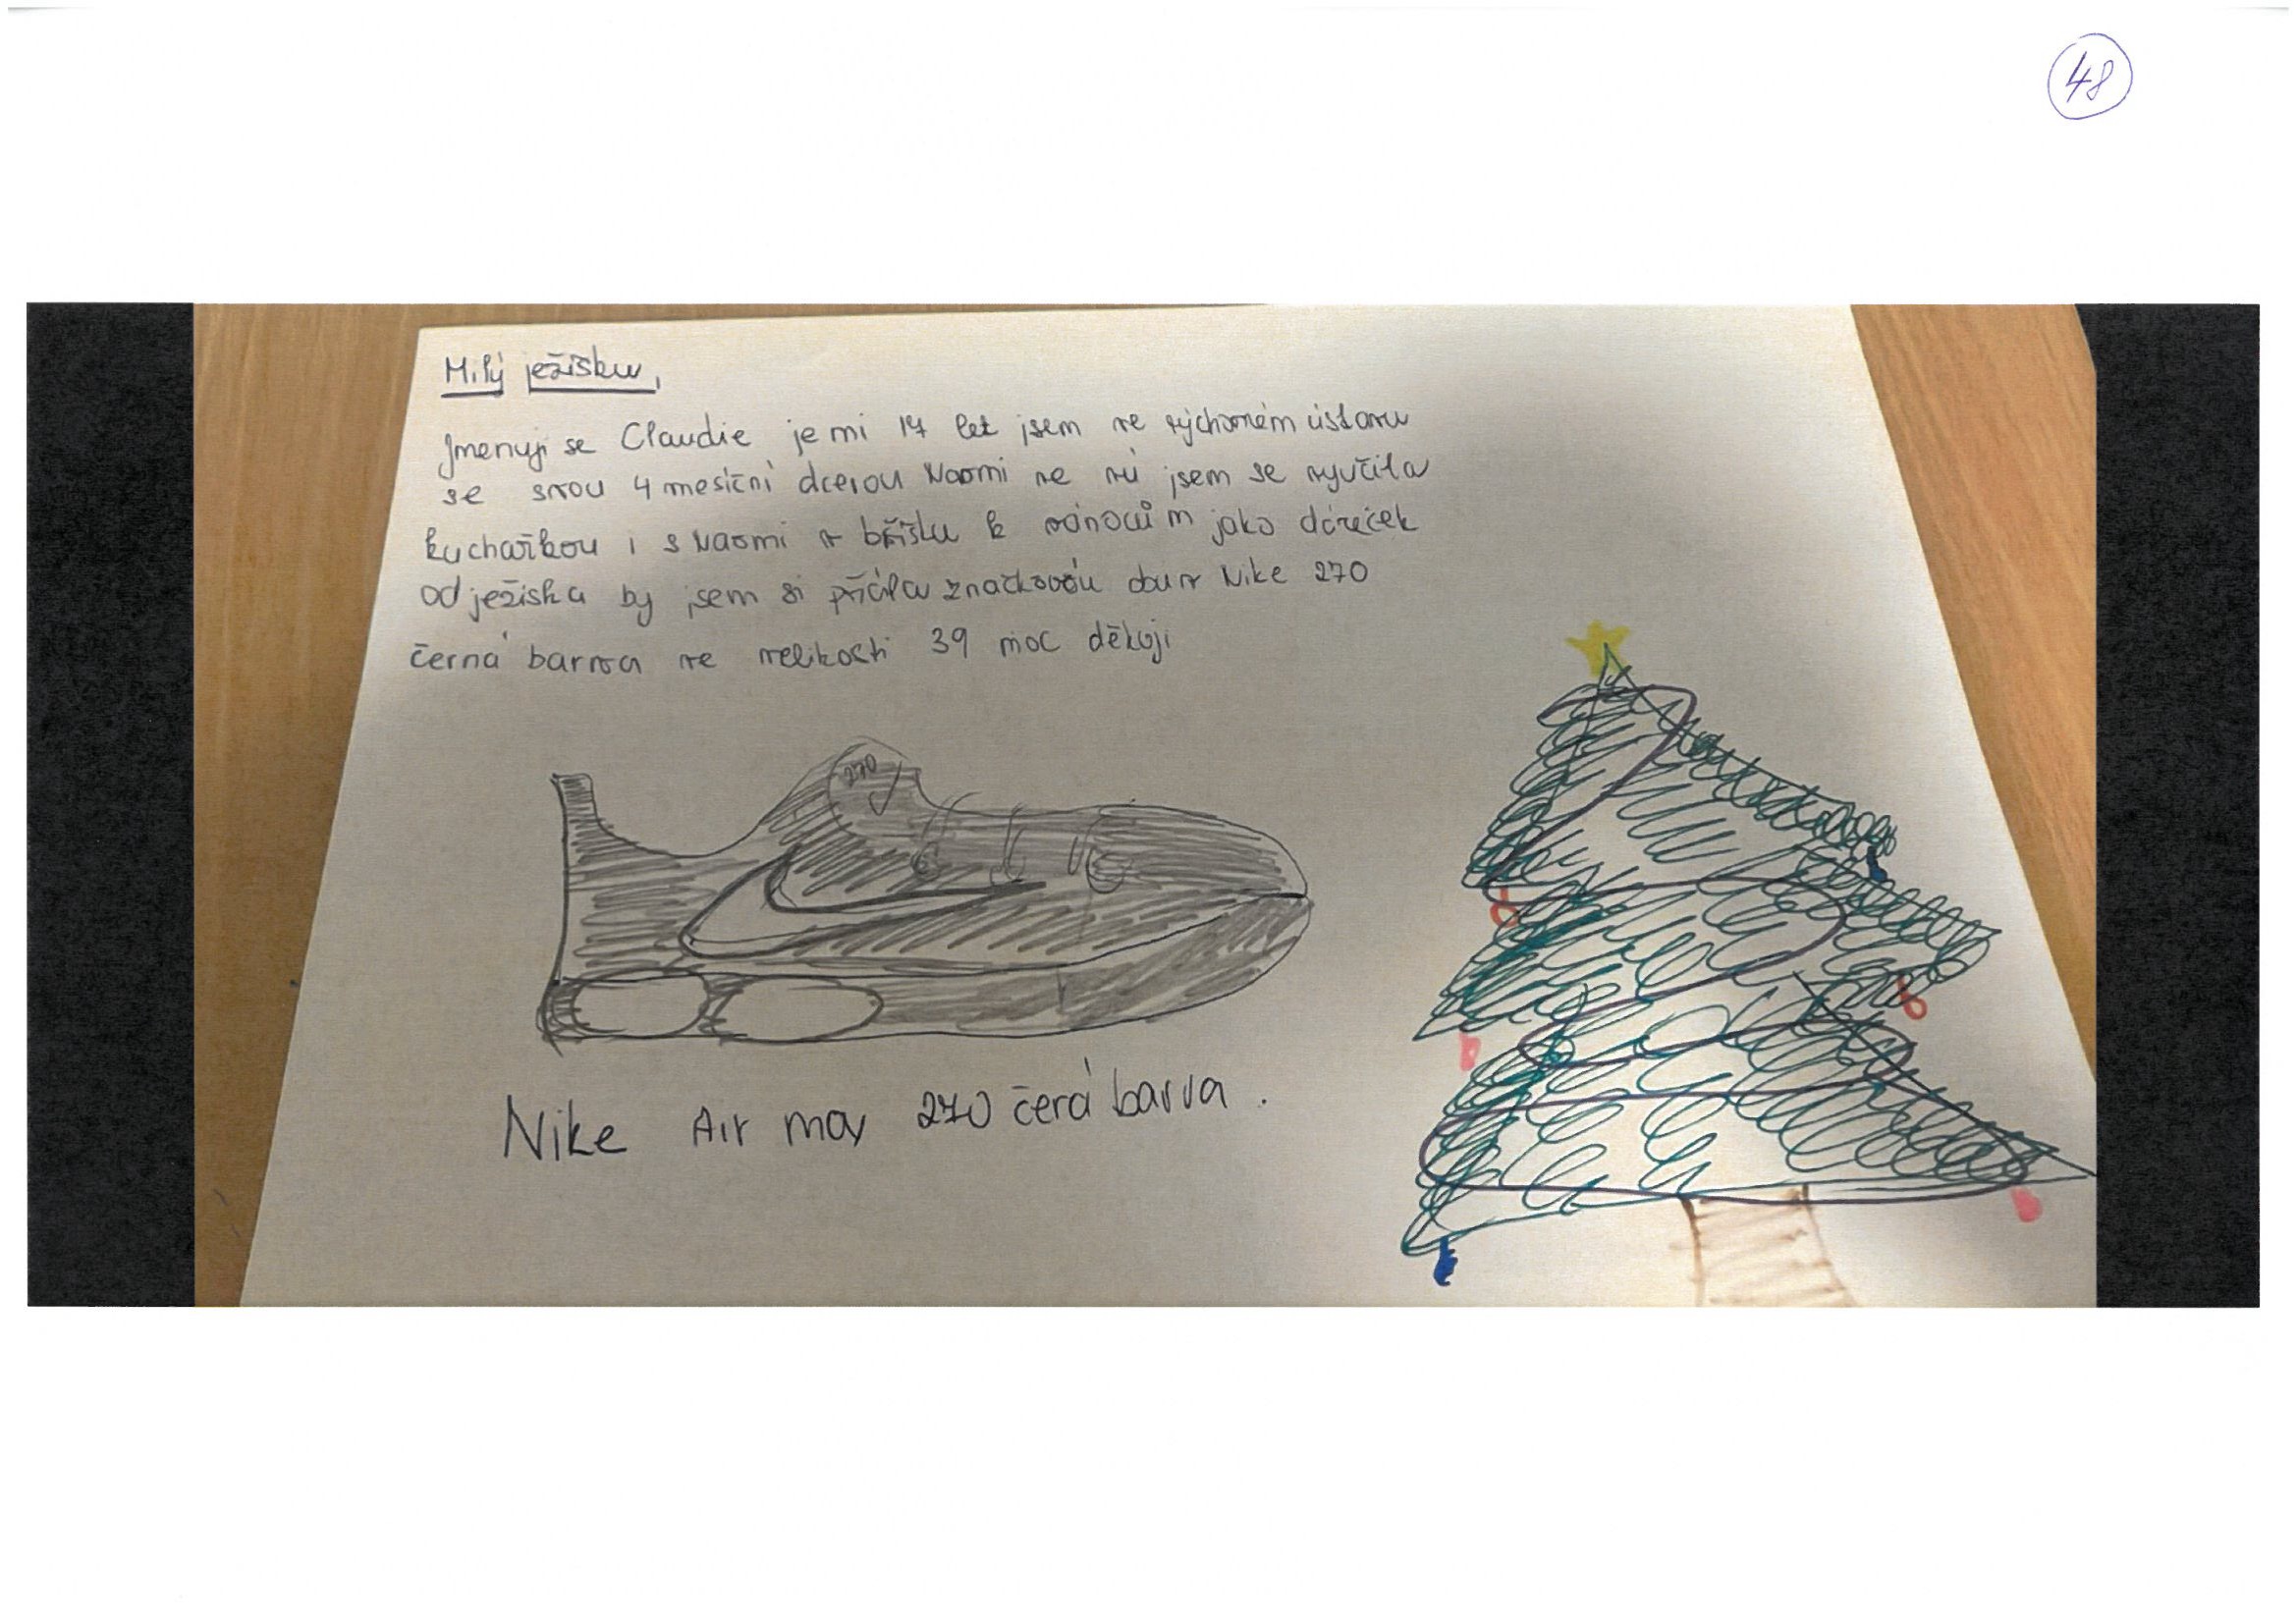 48
Milý ježíšku,
Jmenuji se Claudie je mi 17 let jsem ve výchovném ústavu
se svou 4 mesíční dcerou Naomi ve vú jsem se vyučila
kuchařkou i s Naomi v bříšku k vánocům jako dáreček
od ježíška by jsem si přála značkovou obuv Nike 270
černá barva ve velikosti 39 moc děkuji
270
Nike Air max 270 čerá barva.